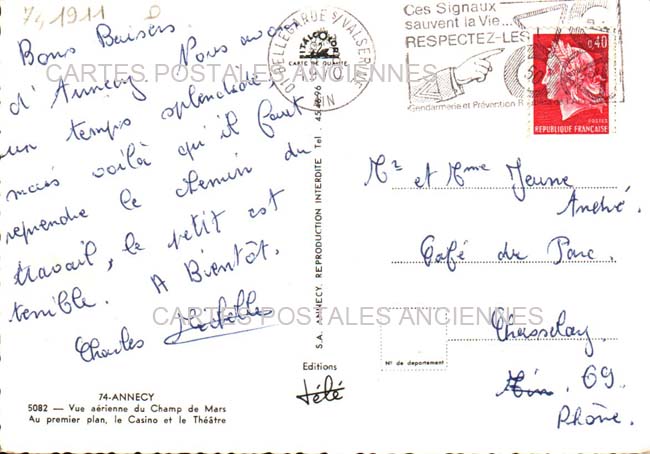 74 1911 D
Bons Baisers
d'Annecy. Nous avons
un temps splendide,
mais voilà qu'il faut
reprendre le chemin du
travail, le petit est
terrible. A Bientôt.
Charles
74-ANNECY
5082 — Vue aérienne du Champ de Mars
Au premier plan, le Casino et le Théâtre
ITALCOLOR
CARTE DE QUALITÉ
S.A. ANNECY. REPRODUCTION INTERDITE Tel. 45.46.96
Editions
télé
BELLEGARDE S/VALSERINE
AIN
Ces Signaux
sauvent la Vie...
RESPECTEZ-LES
Gendarmerie et Prévention Routière
0,40
POSTES
REPUBLIQUE FRANÇAISE
Mr et Mme Jeune
André.
Café du Parc.
Chasselay.
Ain. 69.
Rhône.
N° de département
CARTES POSTALES ANCIENNES
CARTES POSTALES ANCIENNES